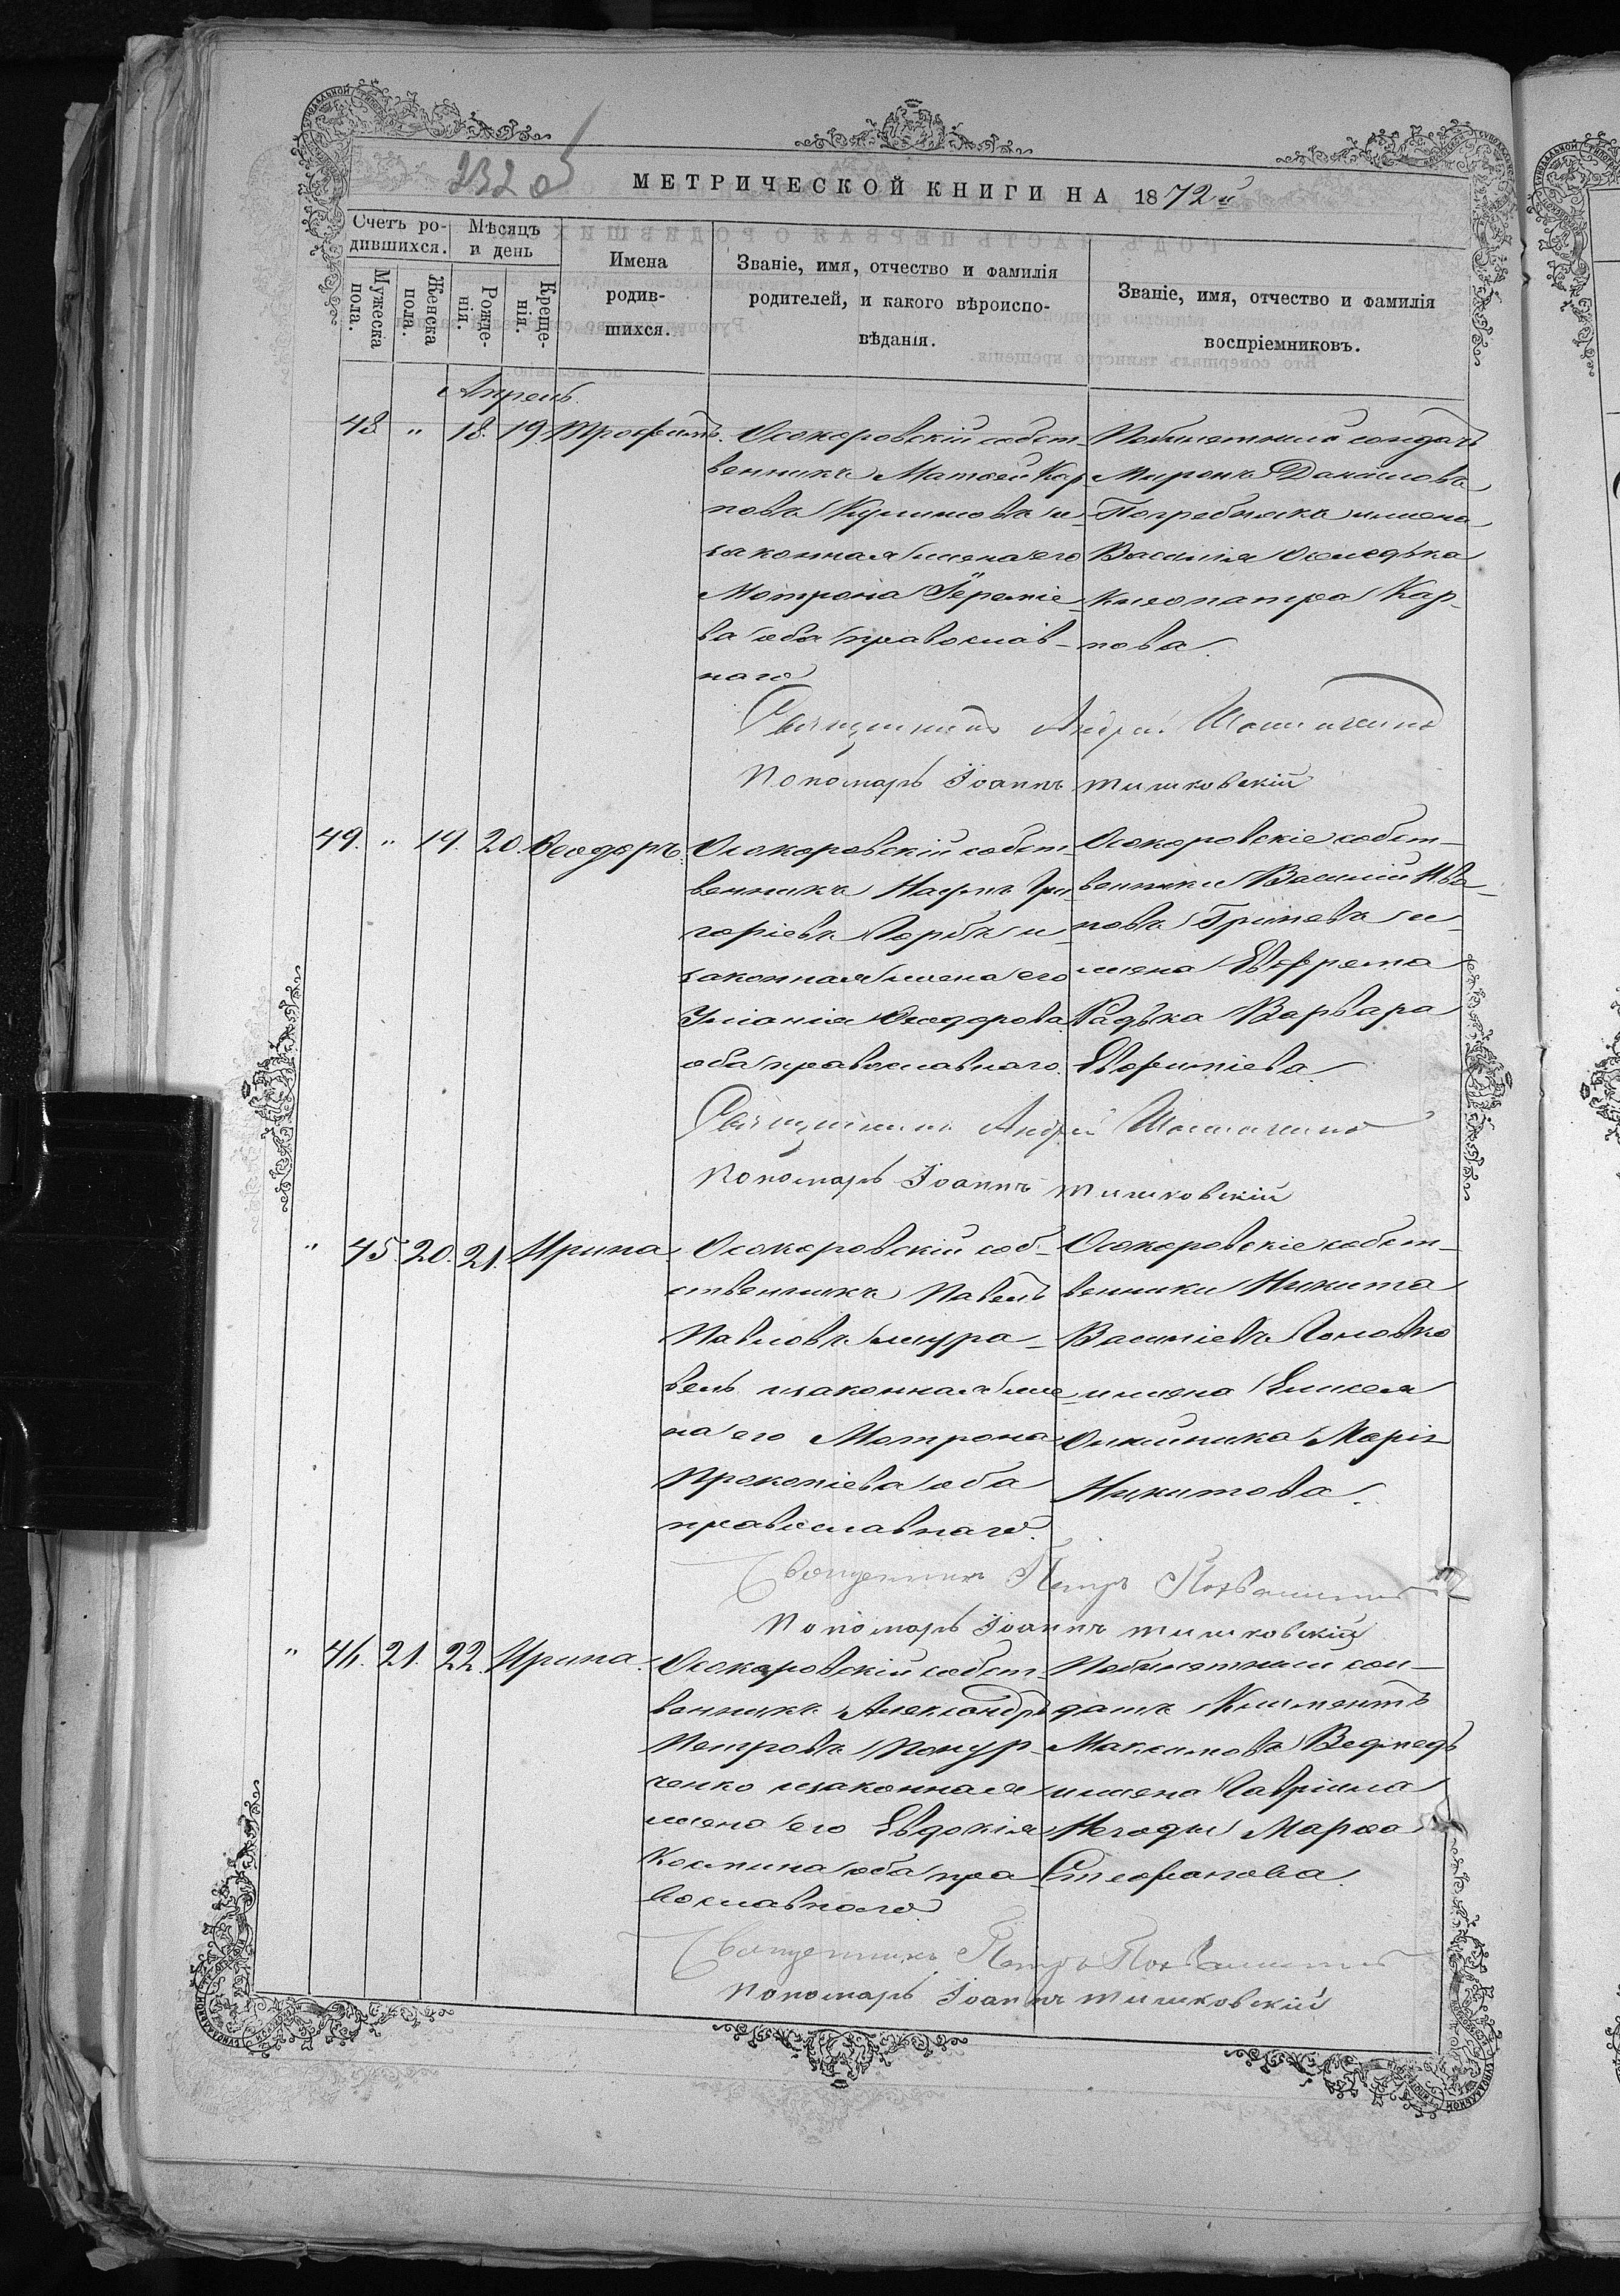 232 об
МЕТРИЧЕСКОЙ КНИГИ НА 1872й
Счетъ родившихся.
Мѣсяцъ и день
Мужеска пола.
Женска пола.
Рожденія.
Крещенія.
Имена родившихся.
Званіе, имя, отчество и фамилія родителей, и какого вѣроисповѣданія.
Званіе, имя, отчество и фамилія воспріемниковъ.
Апрель.
48. " 18. 19. Трофимъ.
Осокоровскій собст-
венникъ Матѳей Кар
повъ и
законная жена его
Мотрона Іереміе-
ва оба православ-
наго
солдатъ
Миронъ Даниловъ
Погребнякъ и жена
Василія Оселедька
Клеопатра Кар-
пова.
Священникъ Андрей
Пономарь Іоаннъ Тишковскій
49. " 19. 20. Ѳеодоръ.
Осокоровскій собст-
венникъ Наумъ Гри
горіевъ и
законная жена его
Уліанія Ѳеодорова
оба православнаго.
Осокоровскіе собст-
венники Василій Ива-
новъ Гриневъ и
жена Ефрема
Радька Варвара
Евфиміева.
Священникъ Андрей
Пономарь Іоаннъ Тишковскій
" 45. 20. 21. Ирина.
Осокоровскій соб-
ственникъ Павелъ
Павловъ Жура-
вель и законная же
на его Мотрона
Прокопіева оба
православнаго.
Осокоровскіе собст-
венники Никита
Василіевъ Головко
и жена Елисея
Олійника Марія
Никитова.
Священникъ Петръ
Пономарь Іоаннъ Тишковскій
" 46. 21. 22. Ирина.
Осокоровскій собст-
венникъ Александръ
Петровъ
ченко и законная
жена его Евдокія
Космина оба пра-
вославнаго.
сол-
датъ Климентъ
Максимовъ Ведмедь
и жена Гавріила
Негоды Марѳа
Стефанова.
Священникъ Петръ
Пономарь Іоаннъ Тишковскій